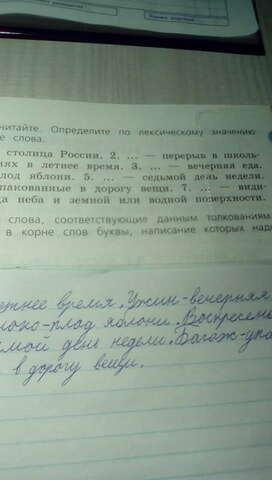 читайте. Определите по лексическому значению
е слова.
столица России. 2. ... — перерыв в школь-
нях в летнее время. 3. ... — вечерняя еда.
лод яблони. 5. ... — седьмой день недели.
пакованные в дорогу вещи. 7. ... — види-
да неба и земной или водной поверхности.
слова, соответствующие данным толкованиям.
в корне слов буквы, написание которых надо
тнее время. Ужин-вечерняя
локо-плод яблони. Воскресень
мой день недели. Багаж-упа
в дорогу вещи.